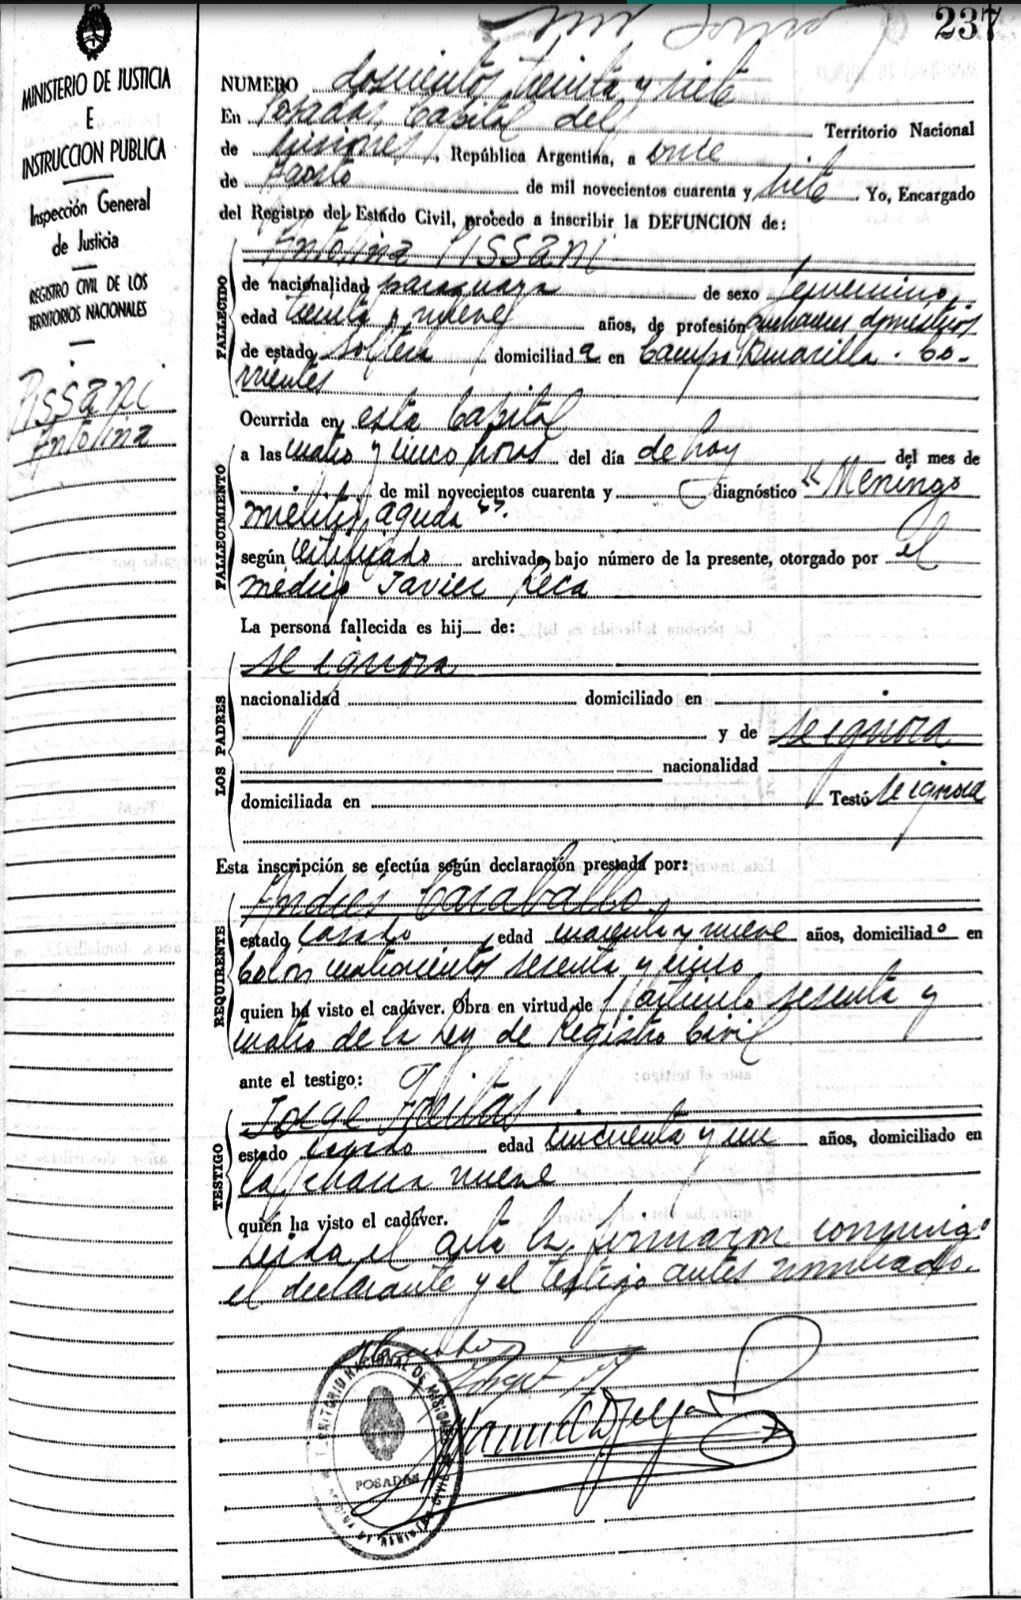 237
MINISTERIO DE JUSTICIA
E
INSTRUCCION PUBLICA
Inspección General
de Justicia
REGISTRO CIVIL DE LOS
TERRITORIOS NACIONALES
Pissani
Antolina
NUMERO doscientos treinta y siete
En Posadas, Capital del Territorio Nacional
de Misiones, República Argentina, a once
de Agosto de mil novecientos cuarenta y siete. Yo, Encargado
del Registro del Estado Civil, procedo a inscribir la DEFUNCION de:
Antolina Pissani
FALLECIDO
de nacionalidad paraguaya de sexo femenino,
edad treinta y nueve años, de profesión quehaceres domésticos
de estado soltera domiciliada en Campo Amarilla. Co-
rrientes
Ocurrida en esta Capital
FALLECIMIENTO
a las cuatro y cinco horas del día de hoy del mes de
de mil novecientos cuarenta y diagnóstico "Meningo
mielitis aguda".
según certificado archivado bajo número de la presente, otorgado por el
médico Javier Reca
La persona fallecida es hij de:
se ignora
LOS PADRES
nacionalidad domiciliado en
y de se ignora
nacionalidad
domiciliada en Testó se ignora
Esta inscripción se efectúa según declaración prestada por:
Andrés Caraballo,
REQUIRENTE
estado casado edad cuarenta y nueve años, domiciliado en
Colón cuatrocientos sesenta y cinco
quien ha visto el cadáver. Obra en virtud de artículo sesenta y
cuatro de la Ley de Registro Civil
ante el testigo:
Jorge Freitas
TESTIGO
estado casado edad cincuenta y un años, domiciliado en
La chacra nueve
quien ha visto el cadáver.
Leida el acta la firmaron conmigo
el declarante y el testigo antes nombrado.
TERRITORIO NACIONAL DE MISIONES
POSADAS